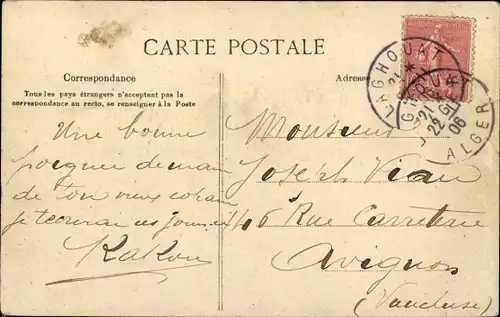 CARTE POSTALE
Correspondance
Tous les pays étrangers n'acceptent pas la
correspondance au recto, se renseigner à la Poste
Adresse
LAGHOUAT
ALGER
22
06
Une bonne
poignee de main
de ton vieux copain
je t'ecrirai ces jours ci
Monsieur
Joseph Vian
46 Rue Carreterie
Avignon
(Vaucluse)